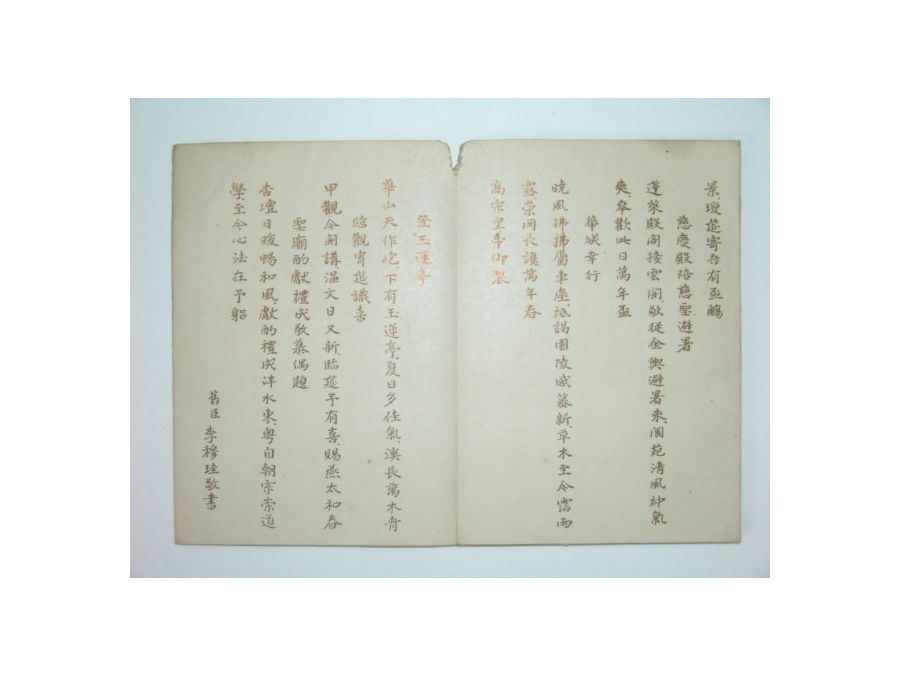 景瓊筵寄吾有盃觴
慈慶殿陪慈聖避暑
蓬萊殿閣接雲開敬從金輿避暑來閬苑清風神氣
爽奉歡此日萬年盃
華城幸行
曉風拂拂屬車塵祗謁園陵感慕新草木至今霑雨
露崇岡長護萬年春
高宗皇帝御製
登玉蓮亭
華山天作屹下有玉蓮亭夏日多佳氣溪長萬木青
臨觀胄筵識喜
甲觀今開講溫文日又新臨筵予有喜賜燕太和春
聖廟酌獻禮成敬慕偶題
杏壇日暖暢和風獻酌禮成泮水東粵自朝宗崇道
學至今心法在予躬
舊臣 李穆珪敬書